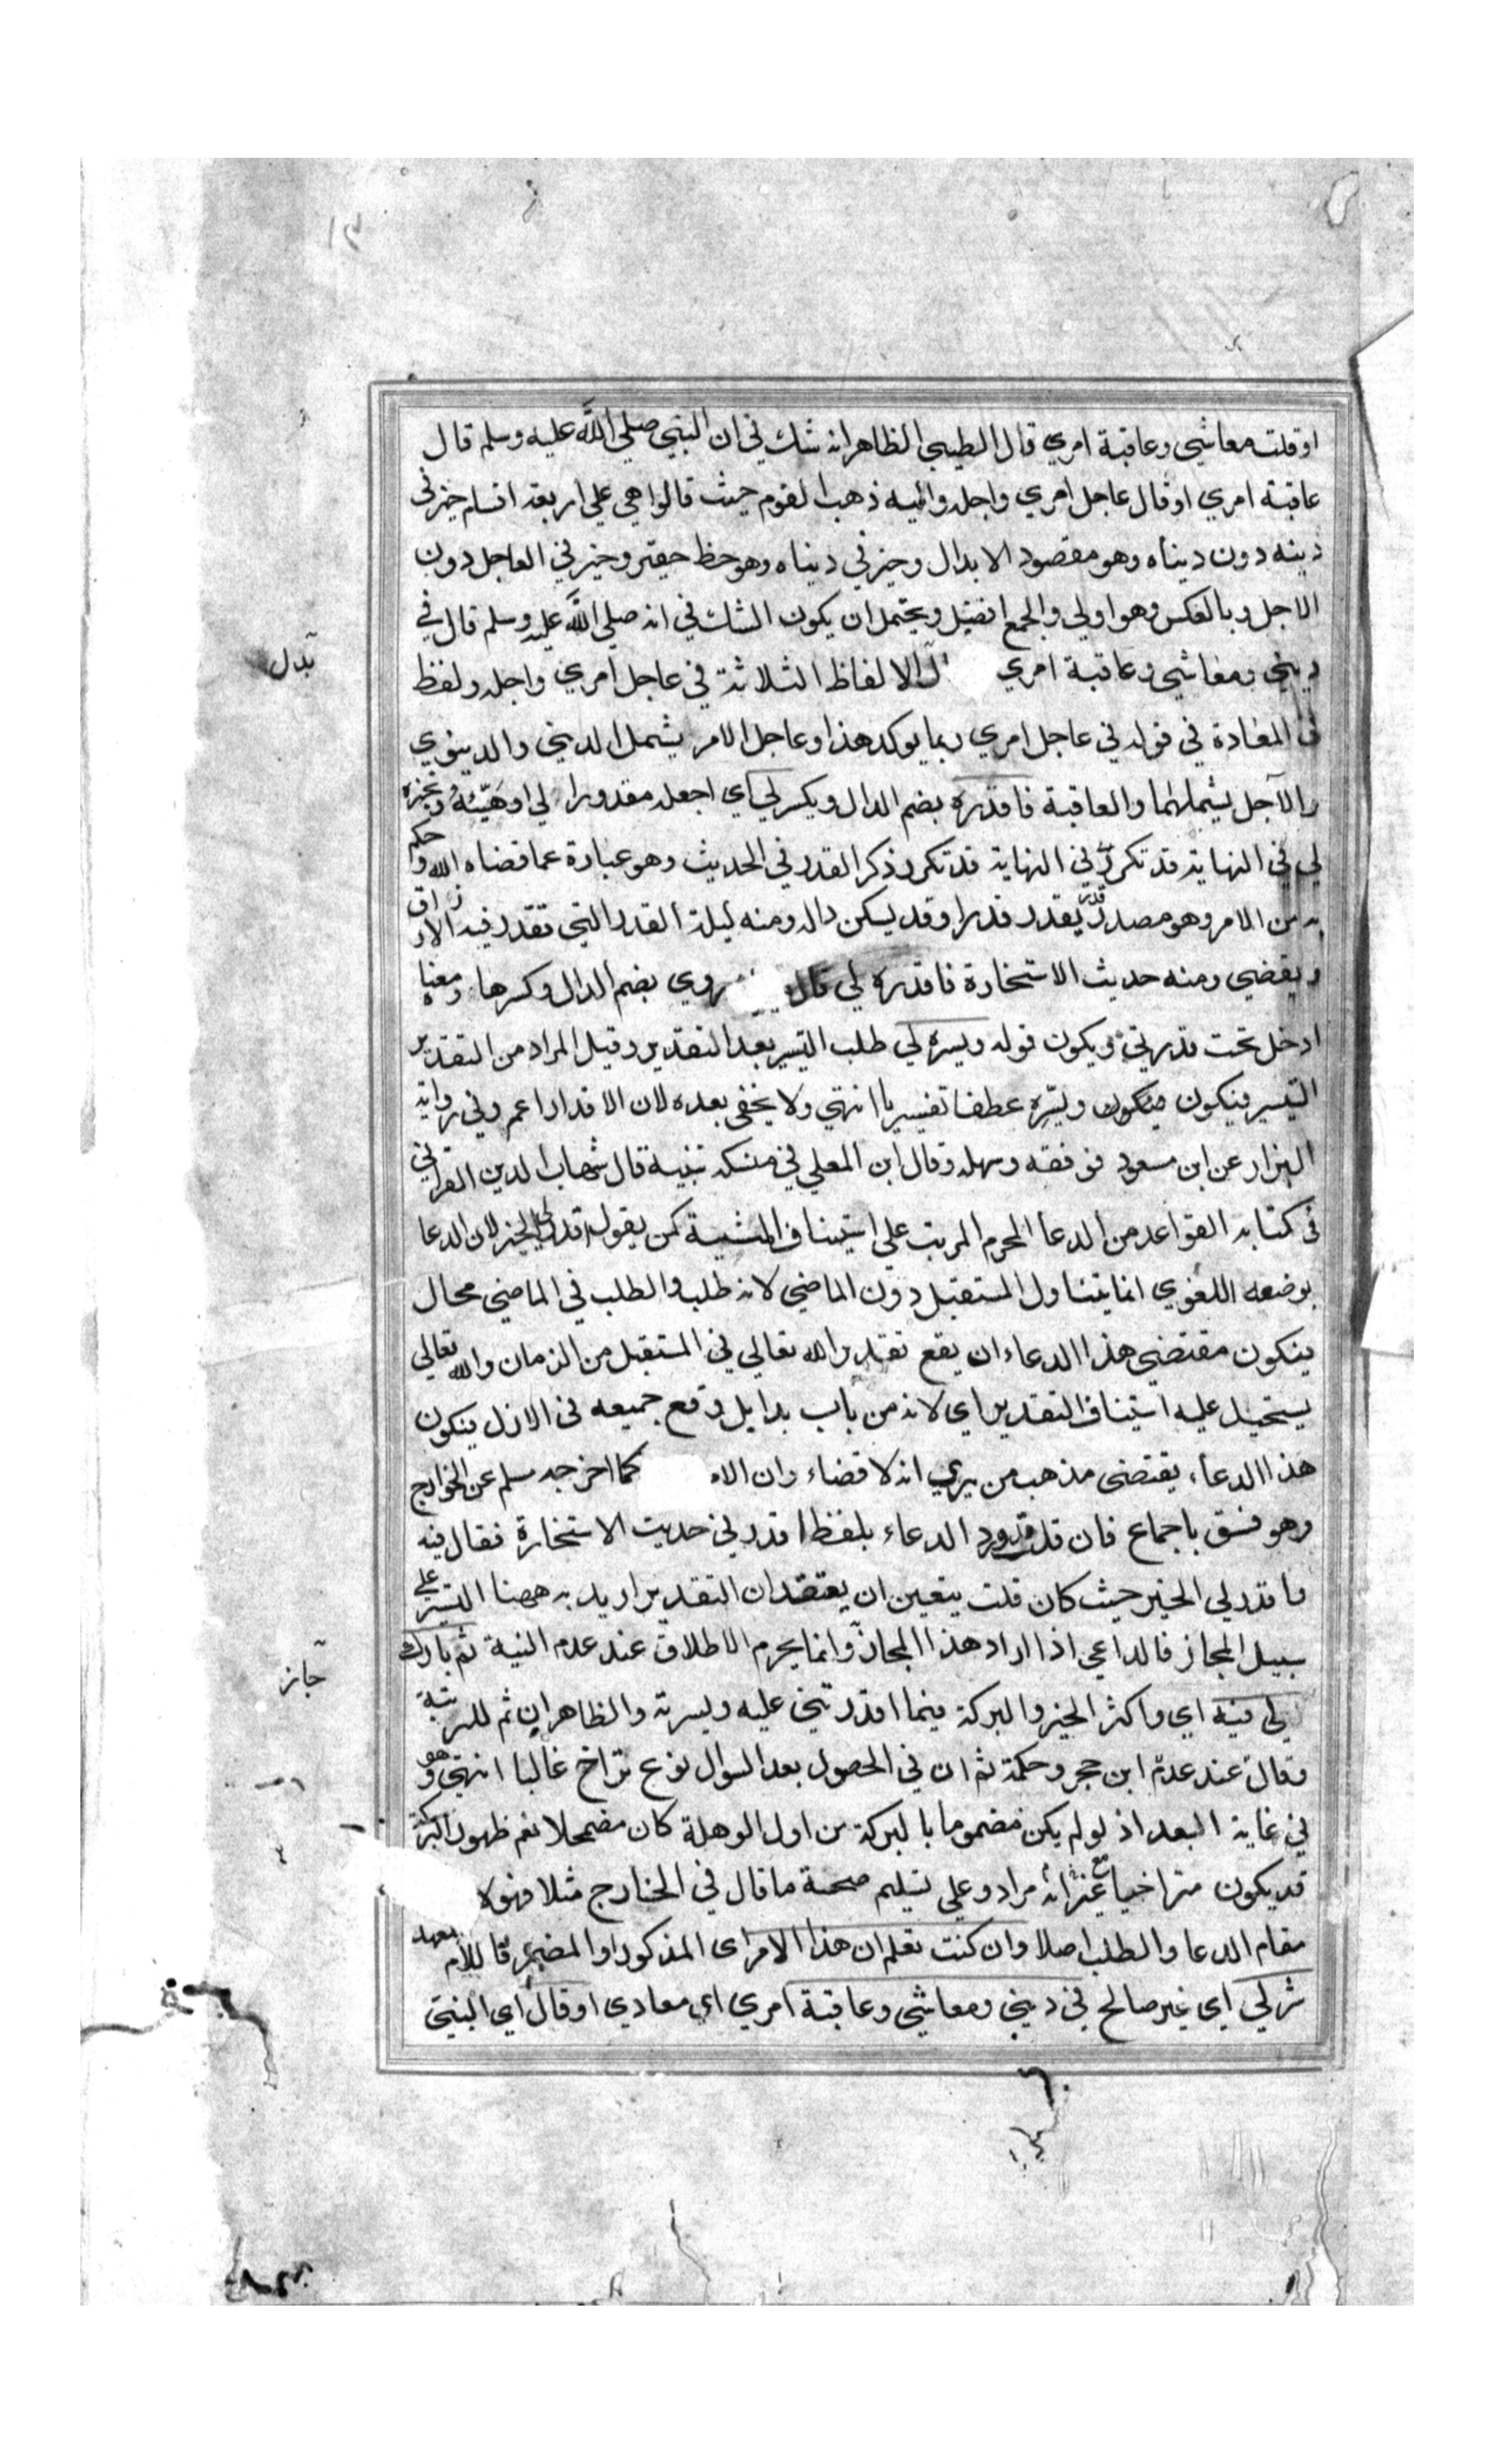 ١٣
او قلت معاشي وعاقبة امري قال الطيبي الظاهر انه شك في ان النبي صلي الله عليه وسلم قال
عاقبة امري او قال عاجل امري واجله واليه ذهب القوم حيث قالوا هي علي اربعة اقسام خير في
دينه دون دنياه وهو مقصود الابدال وخير في دنياه وهو حظ حقير وخير في العاجل دون
الاجل وبالعكس وهو اولي والجمع افضل ويحتمل ان يكون الشك في انه صلي الله عليه وسلم قال في
ديني ومعاشي وعاقبة امري الالفاظ الثلاثة في عاجل امري واجله ولفظ
في المعادة في قوله في عاجل امري ربما يوكد هذا وعاجل الامر يشمل الديني والدينوي
والآجل يشملهما والعاقبة فاقدره بضم الدال ويكسر لي اي اجعله مقدورا لي او هيّئه ونجزه
لي في النهاية قد تكرر في النهاية قد تكرر ذكر القدر في الحديث وهو عبارة عما قضاه الله وحكم
به من الامر وهو مصدر قدر يقدر قدرا وقد يسكن داله ومنه ليلة القدر التي تقدر فيه الارزاق
ويقضي ومنه حديث الاستخارة فاقدره لي قال روي بضم الدال وكسرها ومعناه
ادخل تحت قدرتي ويكون قوله ويسره لي طلب التيسير بعد التقدير وقيل المراد من التقدير
التيسير فيكون فيكون ويسّره عطفا تفسيريا انتهي ولا يخفي بعده لان الاقدار اعم وفي رواية
البزار عن ابن مسعود فوفقه وسهله وقال ابن المعلي في منسكه تنبيه قال شهاب الدين القرافي
في كتابه القواعد من الدعا المحرم المرتب علي استيناف المشية كمن يقول اقدر لي الخير لان الدعا
بوضعه اللغوي انما يتناول المستقبل دون الماضي لانه طلب والطلب في الماضي محال
فيكون مقتضي هذا الدعاء ان يقع تقدير الله تعالي في المستقبل من الزمان والله تعالي
يستحيل عليه استيناف التقدير اي لانه من باب بدا بل وقع جميعه في الازل فيكون
هذا الدعاء يقتضي مذهب من يري انه لا قضاء وان الا كما اخرجه مسلم عن الخوارج
وهو فسق باجماع فان قلت قد ورد الدعاء بلفظ اقدر في حديث الاستخارة فقال فيه
واقدر لي الخير حيث كان قلت يتعين ان يعتقد ان التقدير اريد به ههنا التيسير علي
سبيل المجاز فالداعي اذا اراد هذا المجاز وانما يحرم الاطلاق عند عدم النية ثم بارك
لي فيه اي واكثر الخير والبركة فيما اقدرتني عليه ويسرته والظاهر ان ثم للرتبة
وقال عند عدم ابن حجر وحكمة ثم ان في الحصول بعد السوال نوع تراخ غالبا انتهي وهو
في غاية البعد اذ لو لم يكن مضموما بالبركة من اول الوهلة كان مضمحلا نعم ظهور البركة
قد يكون متراخيا مع غير انه مراد وعلي تسليم صحة ما قال في الخارج مثلا فهو لا
مقام الدعا والطلب اصلا وان كنت تعلم ان هذا الامر اي المذكور او المضمر قاللام معهد
شر لي اي غير صالح في ديني ومعاشي وعاقبة امري اي معادي او قال اي النبي
بدل
جاز